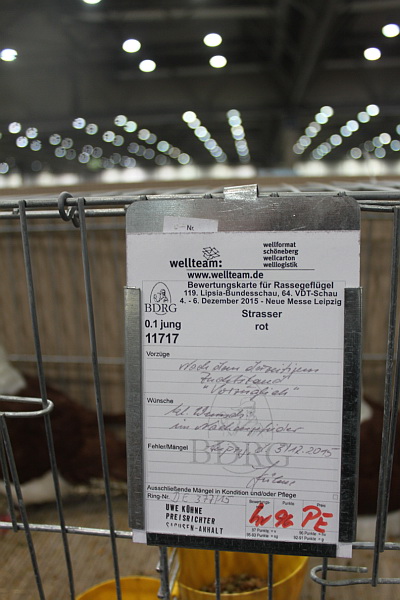 Nr.
wellteam:
wellformat
schöneberg
wellcarton
welllogistik
www.wellteam.de
Bewertungskarte für Rassegeflügel
119. Lipsia-Bundesschau, 64. VDT-Schau
4. - 6. Dezember 2015 - Neue Messe Leipzig
BDRG
0.1 jung
11717
Strasser
rot
Vorzüge
Nach dem derzeitigen
Zuchtstand
"Vorzüglich"
Wünsche
im Nacken
Fehler/Mängel
3/12.2015
BDRG
Ausschließende Mängel in Kondition und/oder Pflege
Ring-Nr. DE
UWE KÜHNE
PREISRICHTER
SACHSEN-ANHALT
Preis
Punkte
hv 96 PE
97 Punkte = v
96 Punkte = hv